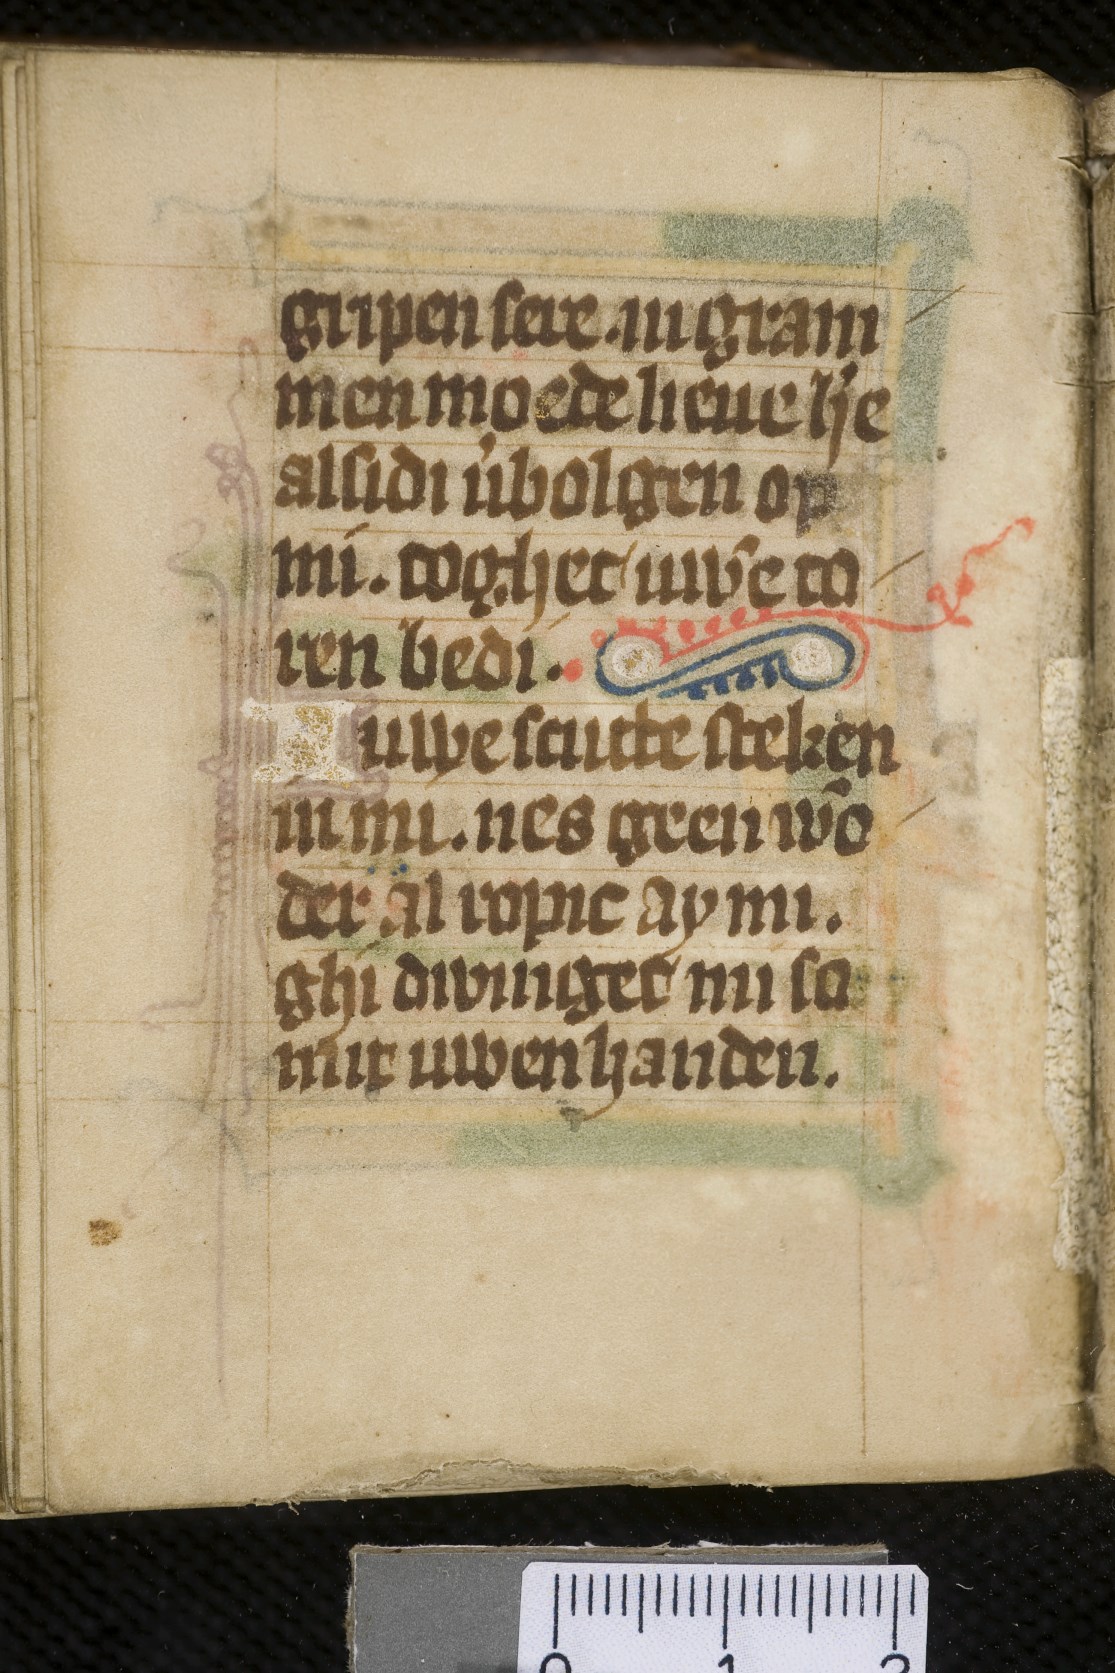 gripen sere. in gram
men moede lieue h'e
al sidi v'bolgen op
mi. toghet uw'e to
ren bedi.
Iuwe scutte steken
in mi. nes geen wō
der al ropic ay mi.
ghi dwinget mi sa
mit uwen handen.
0 1 2